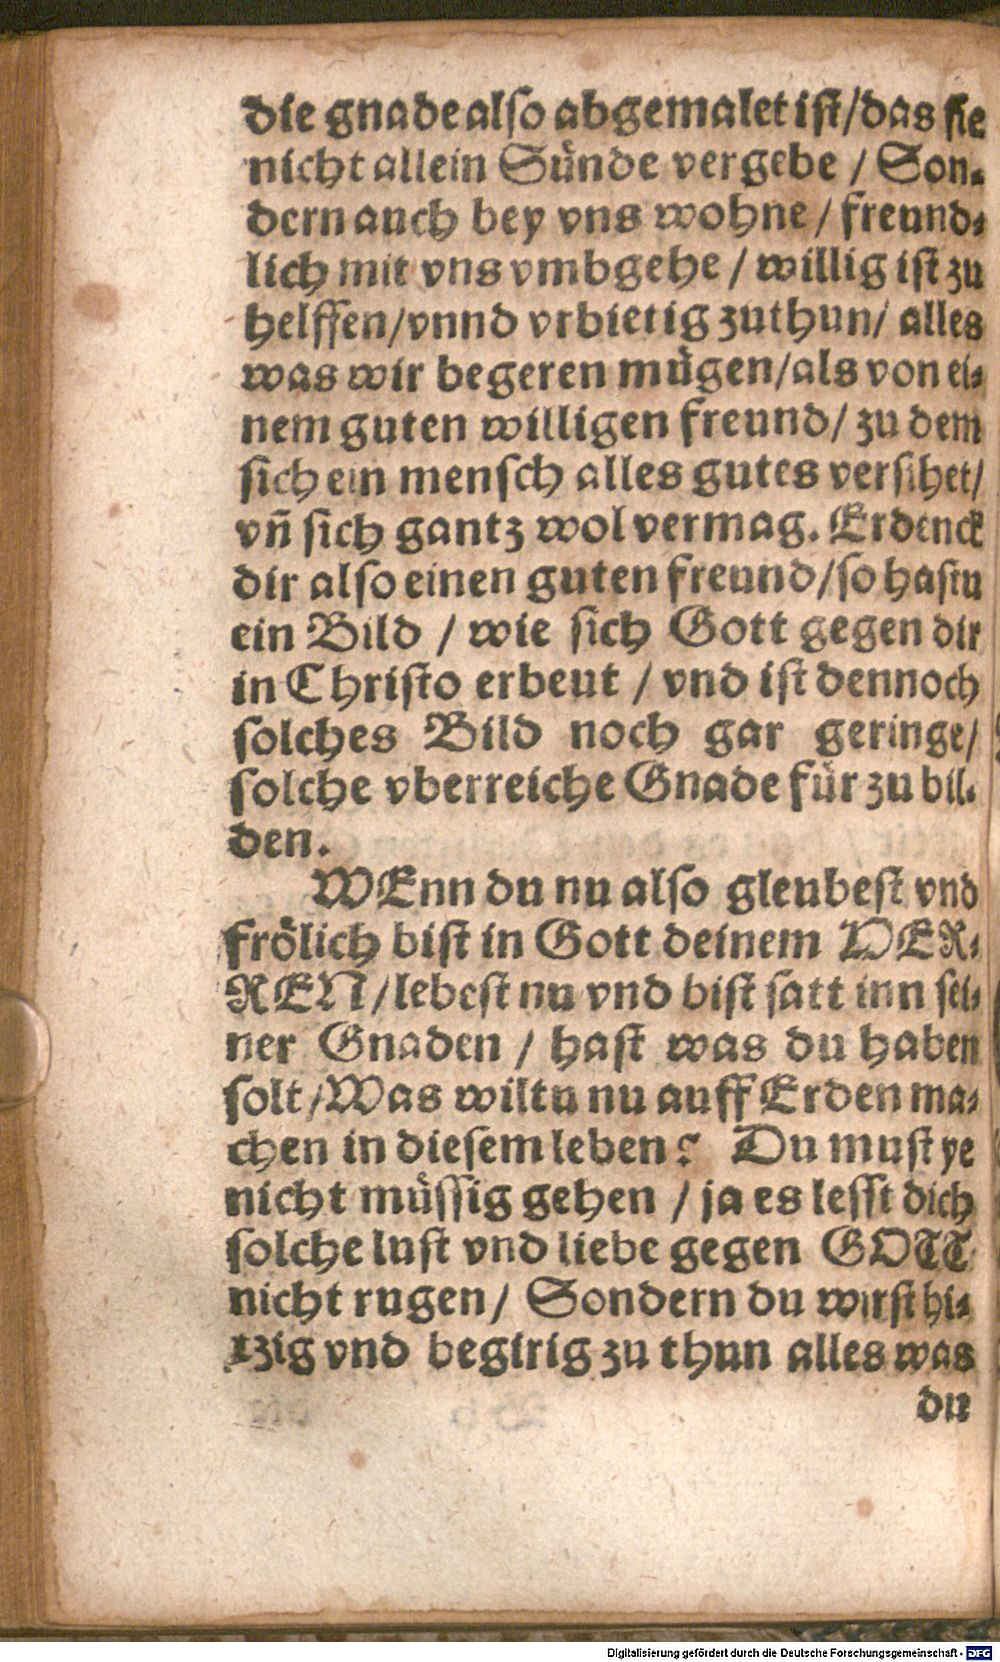 die gnade also abgemalet ist/das sie
nicht allein Sünde vergebe / Son-
dern auch bey vns wohne / freund-
lich mit vns vmbgehe / willig ist zu
helffen/vnnd vrbietig zuthun/ alles
was wir begeren mügen/als von ei-
nem guten willigen freund/ zu dem
sich ein mensch alles gutes versihet/
vñ sich gantz wol vermag. Erdenck
dir also einen guten freund/so hastu
ein Bild / wie sich Gott gegen dir
in Christo erbeut / vnd ist dennoch
solches Bild noch gar geringe/
solche vberreiche Gnade für zu bil-
den.
WEnn du nu also gleubest vnd
frölich bist in Gott deinem HER-
REN/lebest nu vnd bist satt inn sei-
ner Gnaden / hast was du haben
solt/Was wiltu nu auff Erden ma-
chen in diesem leben? Du must ye
nicht müssig gehen / ja es lesst dich
solche lust vnd liebe gegen GOTT
nicht rugen/ Sondern du wirst hi-
tzig vnd begirig zu thun alles was
du
Digitalisierung gefördert durch die Deutsche Forschungsgemeinschaft - DFG